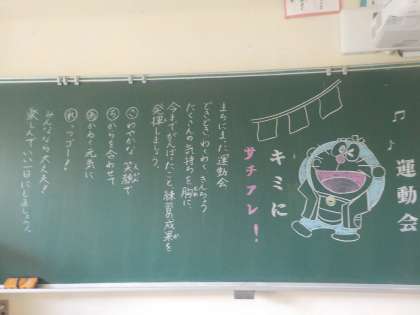 運動会
キミに
サチアレ!
まちにまった運動会
どきどきわくわくきんちょう
たくさんの気持ちを胸に、
今までがんばったこと練習の成果を
発揮しましょう。
さわやかな笑顔で
ちからを合わせて
あかるく元気に
れっつゴー!
みんななら大丈夫!
楽しんでいい一日にしましょう。